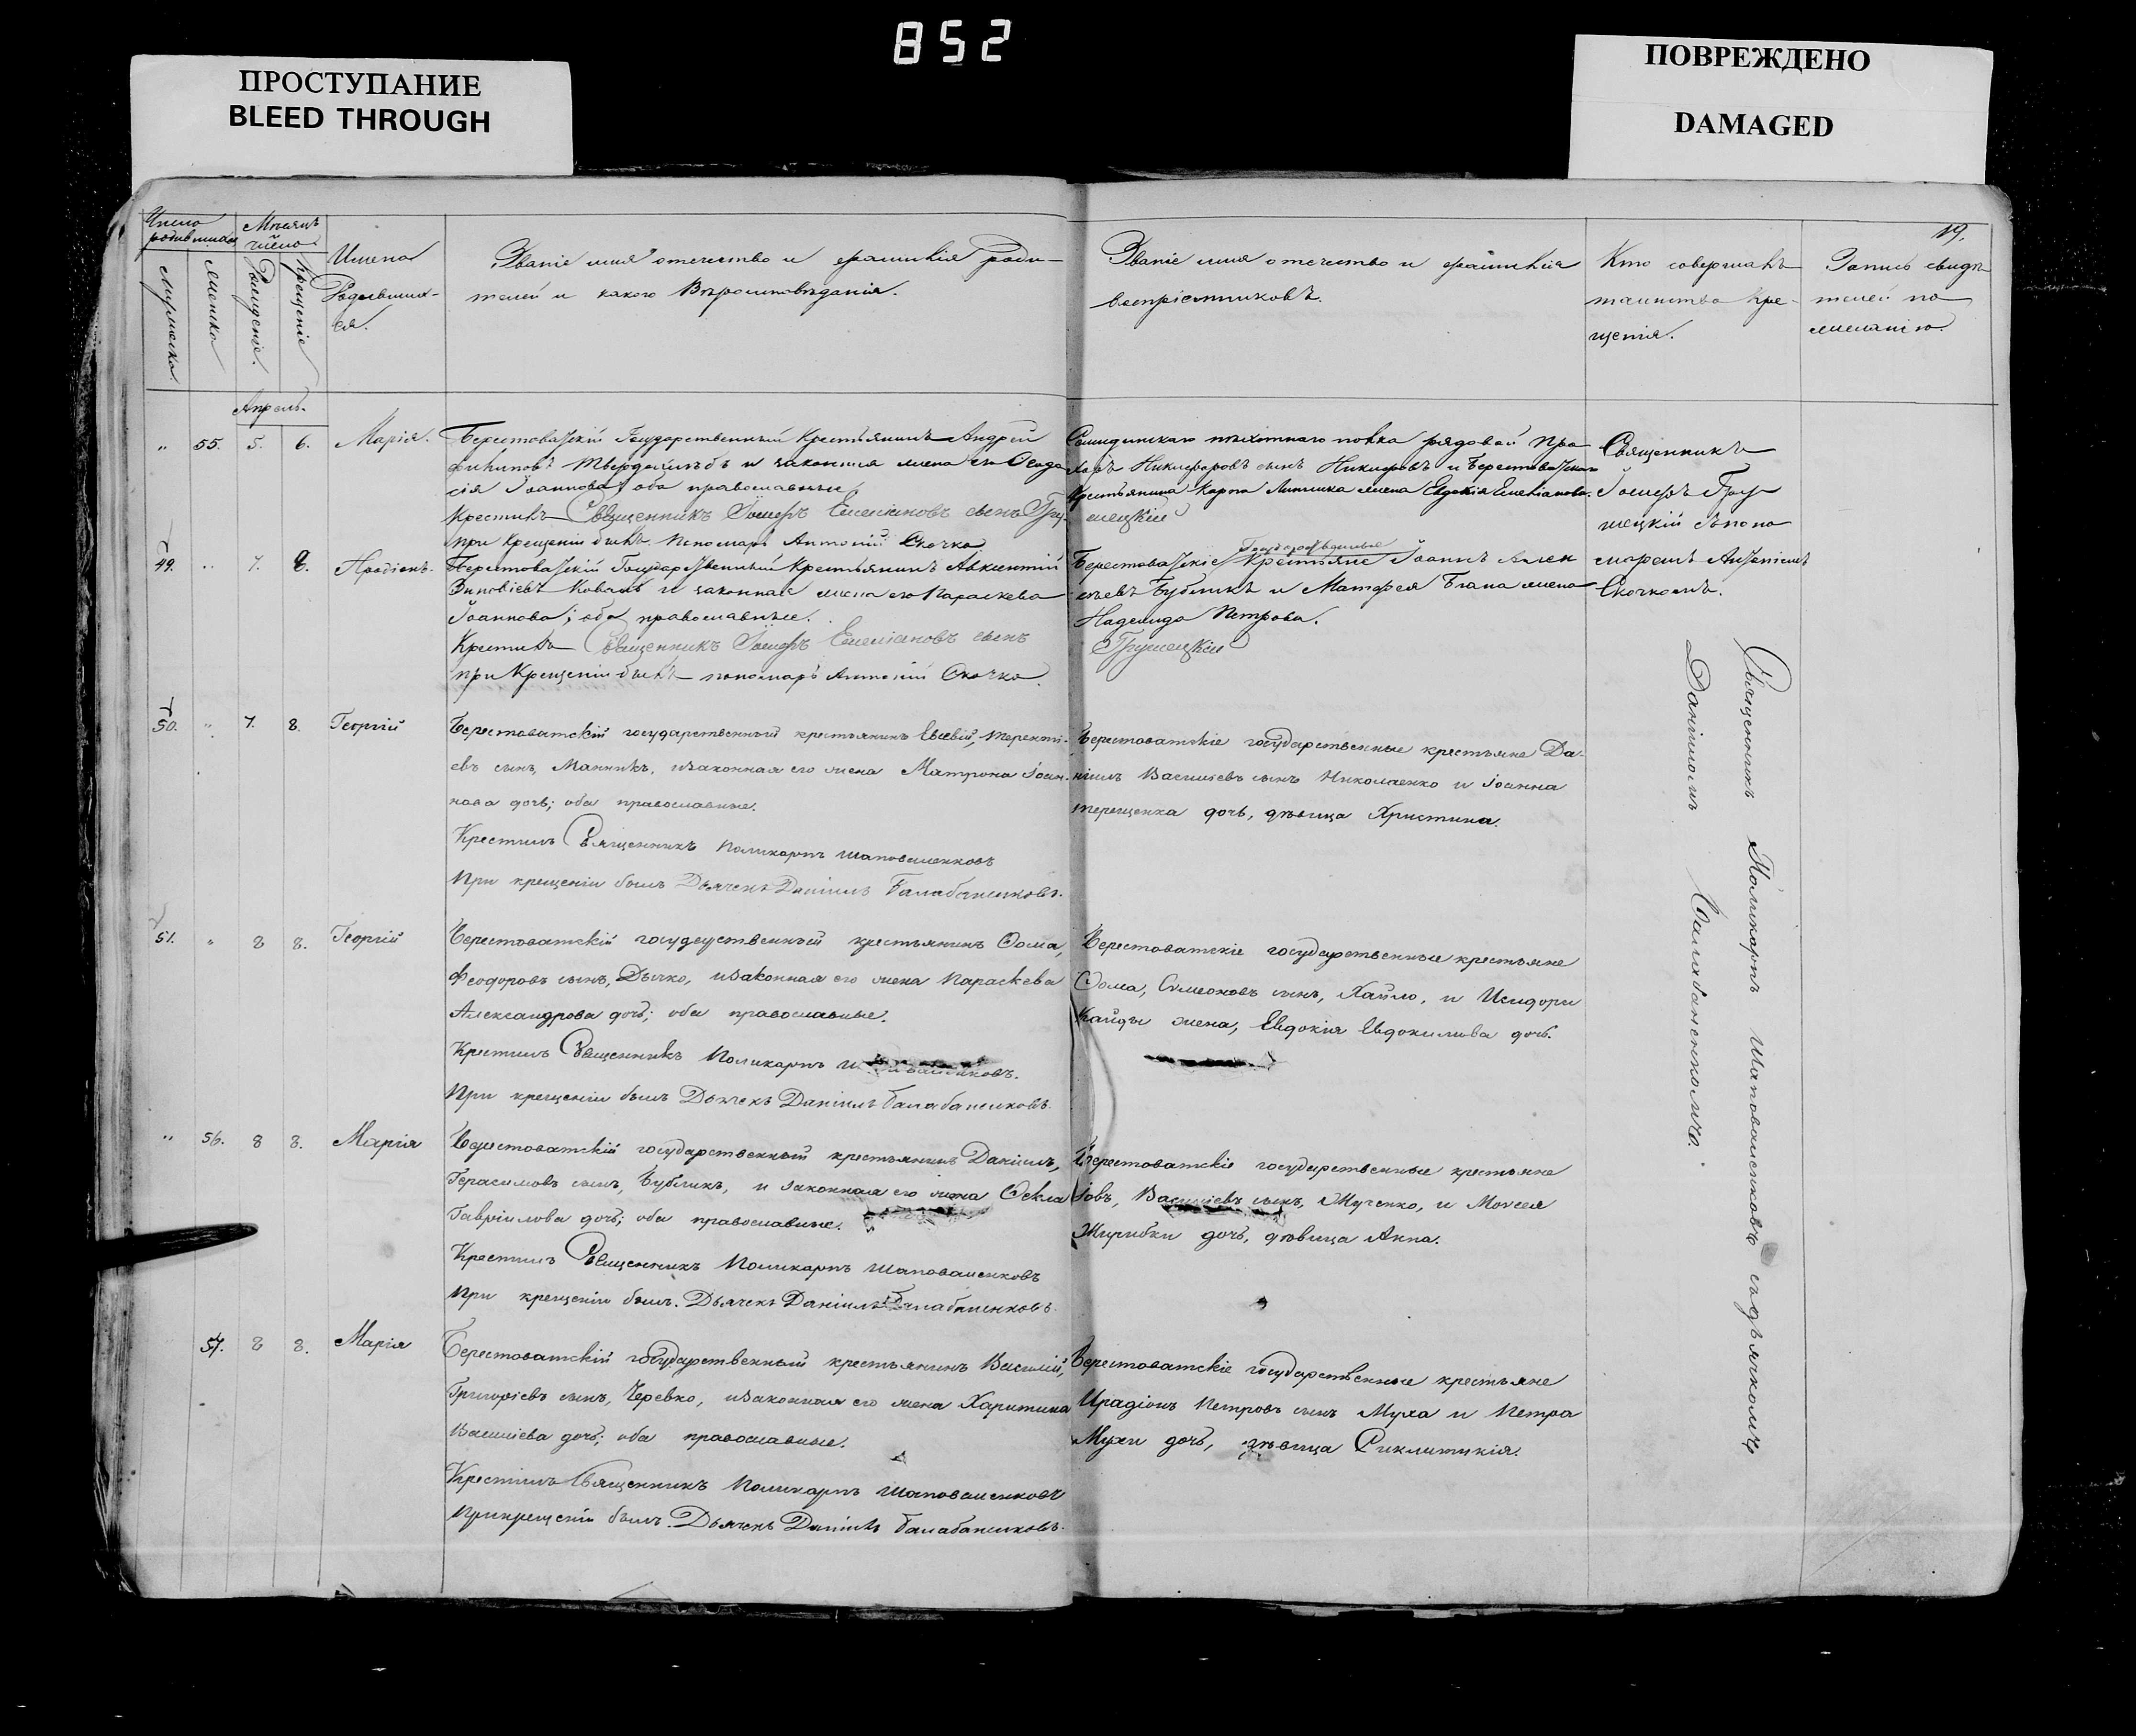 852
ПРОСТУПАНИЕ
BLEED THROUGH
ПОВРЕЖДЕНО
DAMAGED
19.
Число родившихся
Мѣсяцъ число
мужеска
женска
Рожденіе.
крещеніе
Имена
Родивших-
ся.
Званіе имя отечество и фамилія роди-
телей и какого Вѣроисповѣданія.
Званіе имя отечество и фамилія
воспріемниковъ.
Кто совершалъ
таинство кре-
щенія.
Запись свидѣ-
телей по
желанію.
Апрель.
" 55. 5. 6. Марія.
Государственный Крестьянинъ Андрей
и законная жена его
Іоаннова; оба православные
Крестилъ Священникъ Іосифъ Емеліановъ сынъ Гру-
при Крещеніи былъ Пономарь Антоній Скочко
пѣхотнаго полка рядовой Про
Никифоровъ сынъ Никифоровъ и
Крестьянина Карпа жена Евдокія Емеліанова.
шецкій
Священникъ
Іосифъ Гру-
шецкій съ поно
маремъ Антоніемъ
Скочкомъ.
49. " 7. 8. Иродіонъ.
Государственный Крестьянинъ Авксентій
Зиновіевъ Коваль и законная жена его Параскева
Іоаннова; оба православные.
Крестилъ Священникъ Іосифъ Емеліановъ сынъ
при Крещеніи былъ пономарь Антоній Скочко.
Государственные
Крестьяне Іоаннъ Алек
сѣевъ Бубликъ и Матфея жена
Надежда Петрова.
Грушецкій
50. " 7. 8. Георгій
Берестоватскій государственный крестьянинъ Евсевій, Теренті-
евъ сынъ, Манжикъ, и законная его жена Матрона Іоан-
нова дочь; оба православные.
Крестилъ Священникъ Поликарпъ Шаповаленковъ
При крещеніи былъ Дьячекъ Даніилъ Балабаненковъ.
Берестоватскіе государственные крестьяне Да-
ніилъ Василіевъ сынъ Николаенко и Іоанна
Терещенка дочь, дѣвица Христина.
51. " 8 8. Георгій
Берестоватскій государственный крестьянинъ Ѳома,
Феодоровъ сынъ, Дычко, и законная его жена Параскева
Александрова дочь; оба православные.
Крестилъ Священникъ Поликарпъ
При крещеніи былъ Дьячекъ Даніилъ Балабаненковъ.
Берестоватскіе государственные крестьяне
Ѳома, Симеоновъ сынъ, Хайло, и Исидора
Кайды жена, Евдокія Евдокимова дочь.
" 56. 8 8. Марія
Берестоватскій государственный крестьянинъ Даніилъ,
Герасимовъ сынъ, Бубликъ, и законная его жена Ѳекла
Гавріилова дочь; оба православные.
Крестилъ Священникъ Поликарпъ Шаповаленковъ
При крещеніи былъ. Дьячекъ Даніилъ Балабаненковъ.
Берестоватскіе государственные крестьяне
Іовъ, Василіевъ сынъ, и Моисея
дочь, дѣвица Анна.
57. 8 8. Марія
Берестоватскій государственный крестьянинъ Василій,
Григоріевъ сынъ, Черевко, и законная его жена Харитина
Василіева дочь; оба православные.
Крестилъ Священникъ Поликарпъ Шаповаленковъ
При крещеніи былъ. Дьячекъ Даніилъ Балабаненковъ.
Берестоватскіе государственные крестьяне
Ирадіонъ Петровъ сынъ Муха и Петра
Мухи дочь, дѣвица
Священникъ Поликарпъ Шаповаленковъ съ дьячкомъ
Даніиломъ Балабаненкомъ.